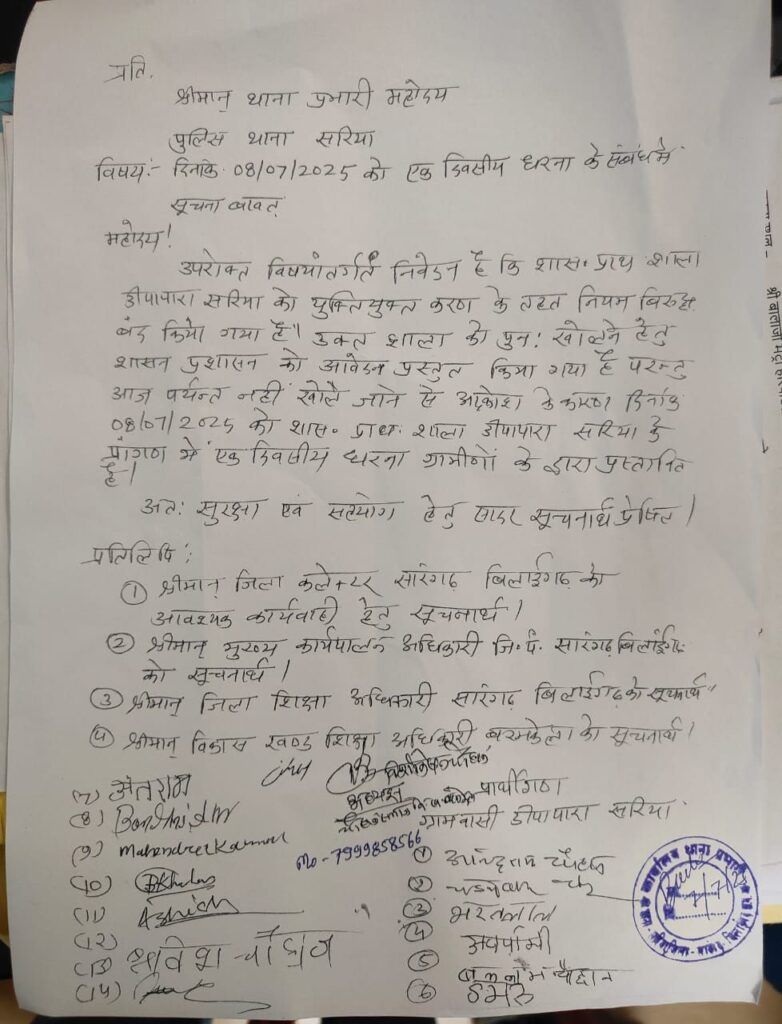 प्रति,
श्रीमान् थाना प्रभारी महोदय
पुलिस थाना सरिया
विषय:- दिनांक 08/07/2025 को एक दिवसीय धरना के संबंध में
सूचना बावत्
महोदय!
उपरोक्त विषयांतर्गत निवेदन है कि शास. प्राथ शाला
डीपापारा सरिया को युक्तियुक्त करण के तहत नियम विरूद्ध
बंद किया गया है। उक्त शाला को पुन: खोलने हेतु
शासन प्रशासन को आवेदन प्रस्तुत किया गया है परन्तु
आज पर्यन्त नहीं खोले जाने से आक्रोश के कारण दिनांक
08/07/2025 को शास. प्राथ. शाला डीपापारा सरिया के
प्रांगण में एक दिवसीय धरना ग्रामीणों के द्वारा प्रस्तावित
है।
अत: सुरक्षा एवं सहयोग हेतु सादर सूचनार्थ प्रेषित।
प्रतिलिपि:
① श्रीमान् जिला कलेक्टर सारंगढ़ बिलाईगढ़ को
आवश्यक कार्यवाही हेतु सूचनार्थ।
② श्रीमान् मुख्य कार्यपालन अधिकारी जि. पं. सारंगढ़ बिलाईगढ़
को सूचनार्थ।
③ श्रीमान् जिला शिक्षा अधिकारी सारंगढ़ बिलाईगढ़ को सूचनार्थ
④ श्रीमान् विकास खण्ड शिक्षा अधिकारी बरमकेला को सूचनार्थ।
प्रार्थीगण
अध्यक्ष
ग्रामवासी डीपापारा सरिया
mo- 7999858566
①
②
③ भरतलाल
④
⑤ चौहान
⑥
(7) अंतराम
(8)
(9) Mahendra Kumar
(10)
(11) Ashish
(12)
(13)
(14)
कार्यालय थाना प्रभारी